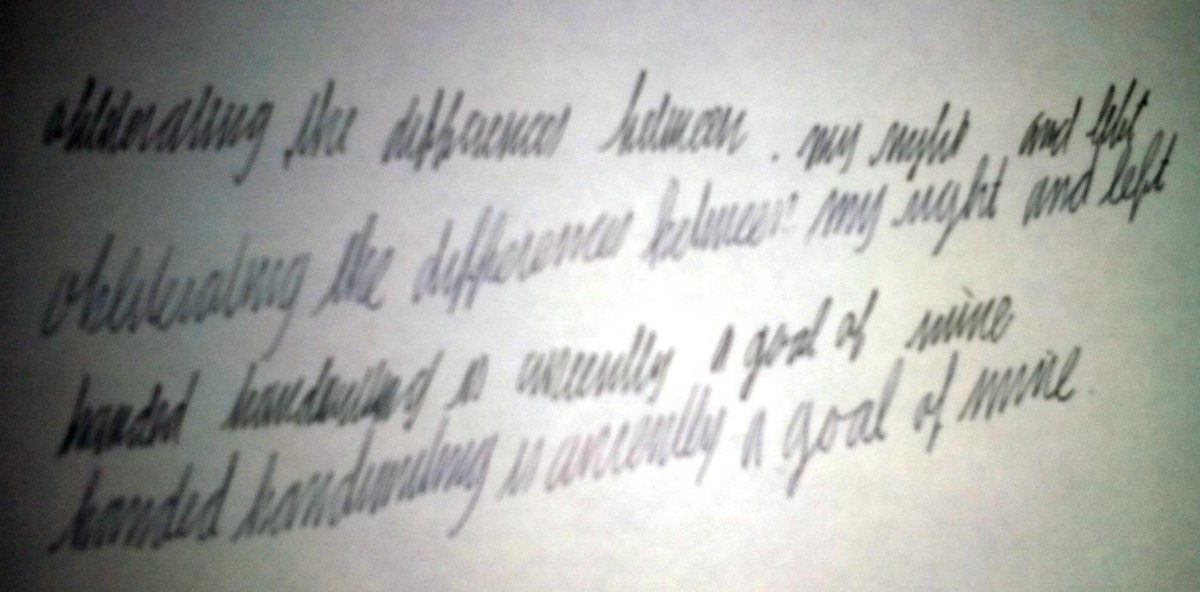 obliterating the differences between my right and left
obliterating the differences between my right and left
handed handwriting is currently a goal of mine
handed handwriting is currently a goal of mine.